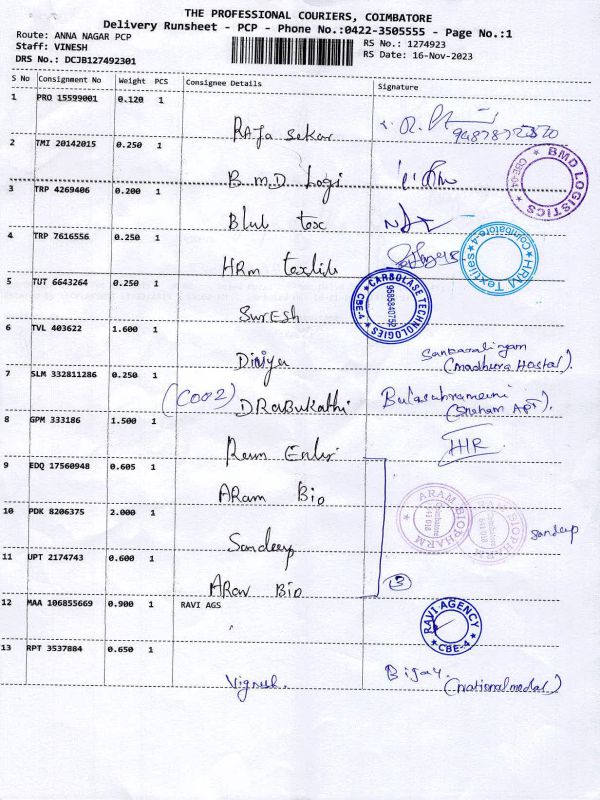 THE PROFESSIONAL COURIERS, COIMBATORE
Delivery Runsheet - PCP - Phone No.:0422-3505555 - Page No.:1
Route: ANNA NAGAR PCP
Staff: VINESH
DRS No.: DCJB127492301
RS No.: 1274923
RS Date: 16-Nov-2023
S No Consignment No Weight PCS Consignee Details Signature
1 PRO 15599001 0.120 1
RAja sekar
2 TMI 20142015 0.250 1
B.M.D Logi
BMD LOGISTICS
CBE-04
3 TRP 4269406 0.200 1
Blul tex
4 TRP 7616556 0.250 1
HRm textile
HRM Textiles
Coimbatore-4
5 TUT 6643264 0.250 1
SuRESh
CARBOLASE TECHNOLOGIES
CBE-4
6 TVL 403622 1.600 1
Diniya
Sankaralingam
(madhura Hostel).
7 SLM 332811286 0.250 1
(COO2) DRABUKathi
(Sneham APT).
8 GPM 333186 1.500 1
9 EDQ 17560948 0.605 1
ARam Bio
ARAM BIOPHARM
10 PDK 8206375 2.000 1
Sandeep
Sandeep
11 UPT 2174743 0.600 1
ARam Bio
3
12 MAA 106855669 0.900 1 RAVI AGS
RAVI AGENCY
CBE-4
13 RPT 3537884 0.650 1
Vignesh.
Bijay.
(national medal)